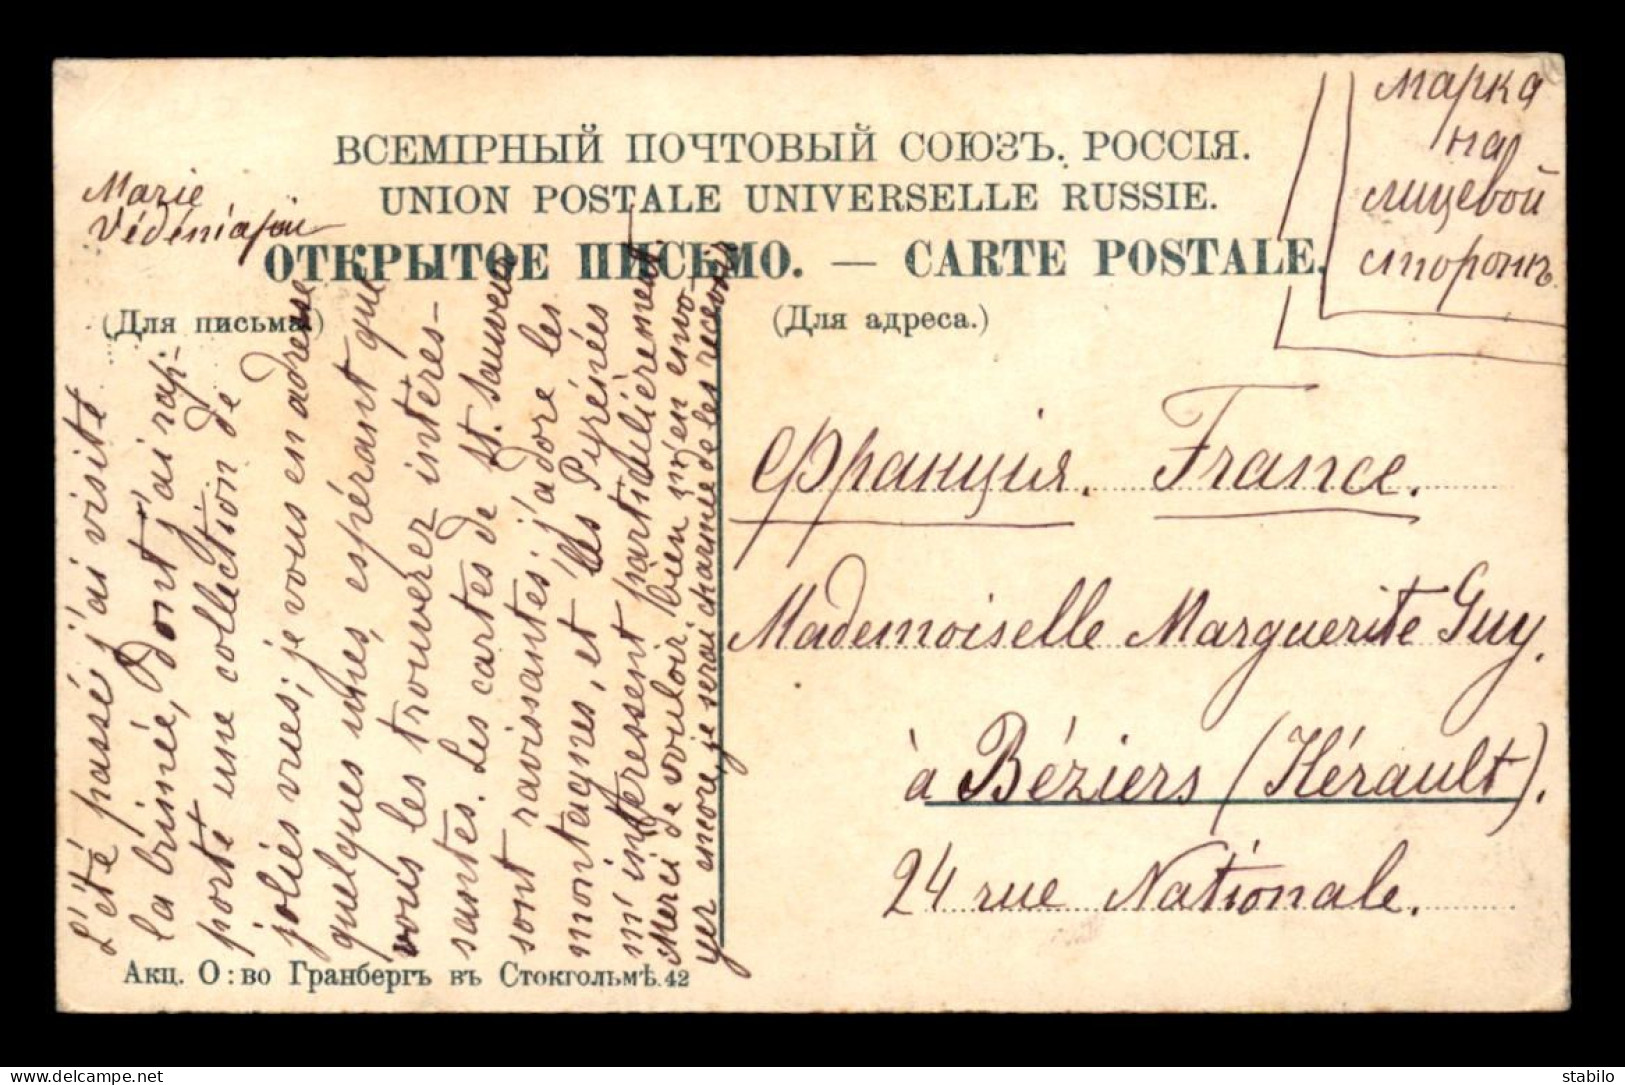 марка
на
лицевой
сторонѣ
ВСЕМІРНЫЙ ПОЧТОВЫЙ СОЮЗЪ. РОССІЯ.
UNION POSTALE UNIVERSELLE RUSSIE.
ОТКРЫТОЕ ПИСЬМО. — CARTE POSTALE.
(Для письма.)
(Для адреса.)
Marie
L'été passé j'ai visité
la brimée, dont j'ai rap-
porté une collection de
jolies vues; je vous en adresse
quelques unes, espérant que
vous les trouverez intéres-
santes. Les cartes de St. Sauveur
sont ravissantes; j'adore les
montagnes, et les Pyrénées
m'intéressent particulièrement.
Merci de vouloir bien m'en envo-
yer encore, je serai charmée de les recevoir
Франція. France.
Mademoiselle Marguerite Guy.
à Béziers (Hérault).
24 rue Nationale.
Акц. О:во Гранбергъ въ Стокгольмѣ. 42
delcampe.net
stabilo